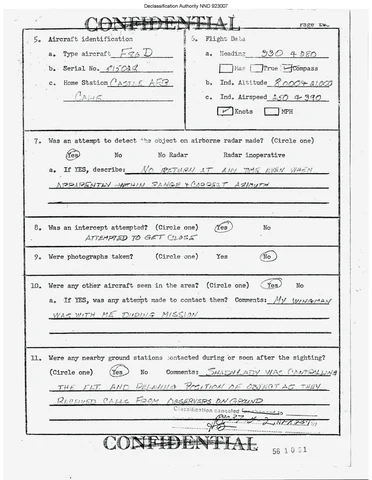 Declassification Authority NND 923007
CONFIDENTIAL
Page
5. Aircraft identification
6. Flight Data
a. Type aircraft F86D
a. Heading 330 & 080
Mag True Compass
b. Serial No.
b. Ind. Altitude
c. Home Station CASTLE AFB
CALIF
c. Ind. Airspeed 250 & 390
Knots MPH
7. Was an attempt to detect the object on airborne radar made? (Circle one)
Yes No No Radar Radar inoperative
a. If YES, describe: NO RETURN AT ANY TIME EVEN WHEN
APPARENTLY WITHIN RANGE & CORRECT AZIMUTH
8. Was an intercept attempted? (Circle one) Yes No
ATTEMPTED TO GET CLOSE
9. Were photographs taken? (Circle one) Yes No
10. Were any other aircraft seen in the area? (Circle one) Yes No
a. If YES, was any attempt made to contact them? Comments: MY WINGMAN
WAS WITH ME DURING MISSION
11. Were any nearby ground stations contacted during or soon after the sighting?
(Circle one) Yes No Comments: SHADYLADY WAS CONTROLLING
THE FLT. AND RELAYING POSITION OF OBJECT AS THEY
RECEIVED CALLS FROM OBSERVERS ON GROUND
Classification canceled
CONFIDENTIAL